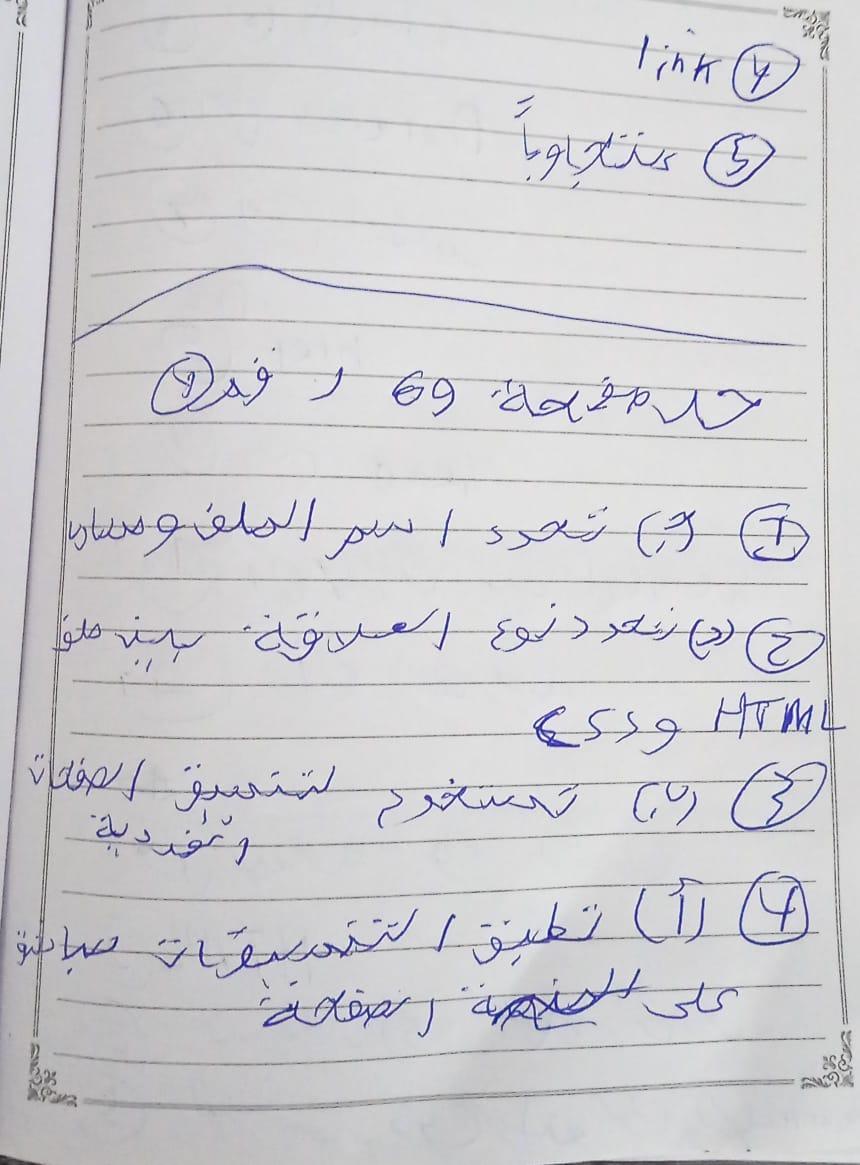 ④ link
⑤ متجاوباً
حل صفحة 69 رقم ①
① (ج) تحدد اسم الملف ومساره
② (ج) تحدد نوع العلاقة بين ملف
HTML و css
③ (ب) تستخدم لتنسيق الصفحات
الفردية
④ (أ) تطبيق التنسيقات مباشرة
على الصفحة